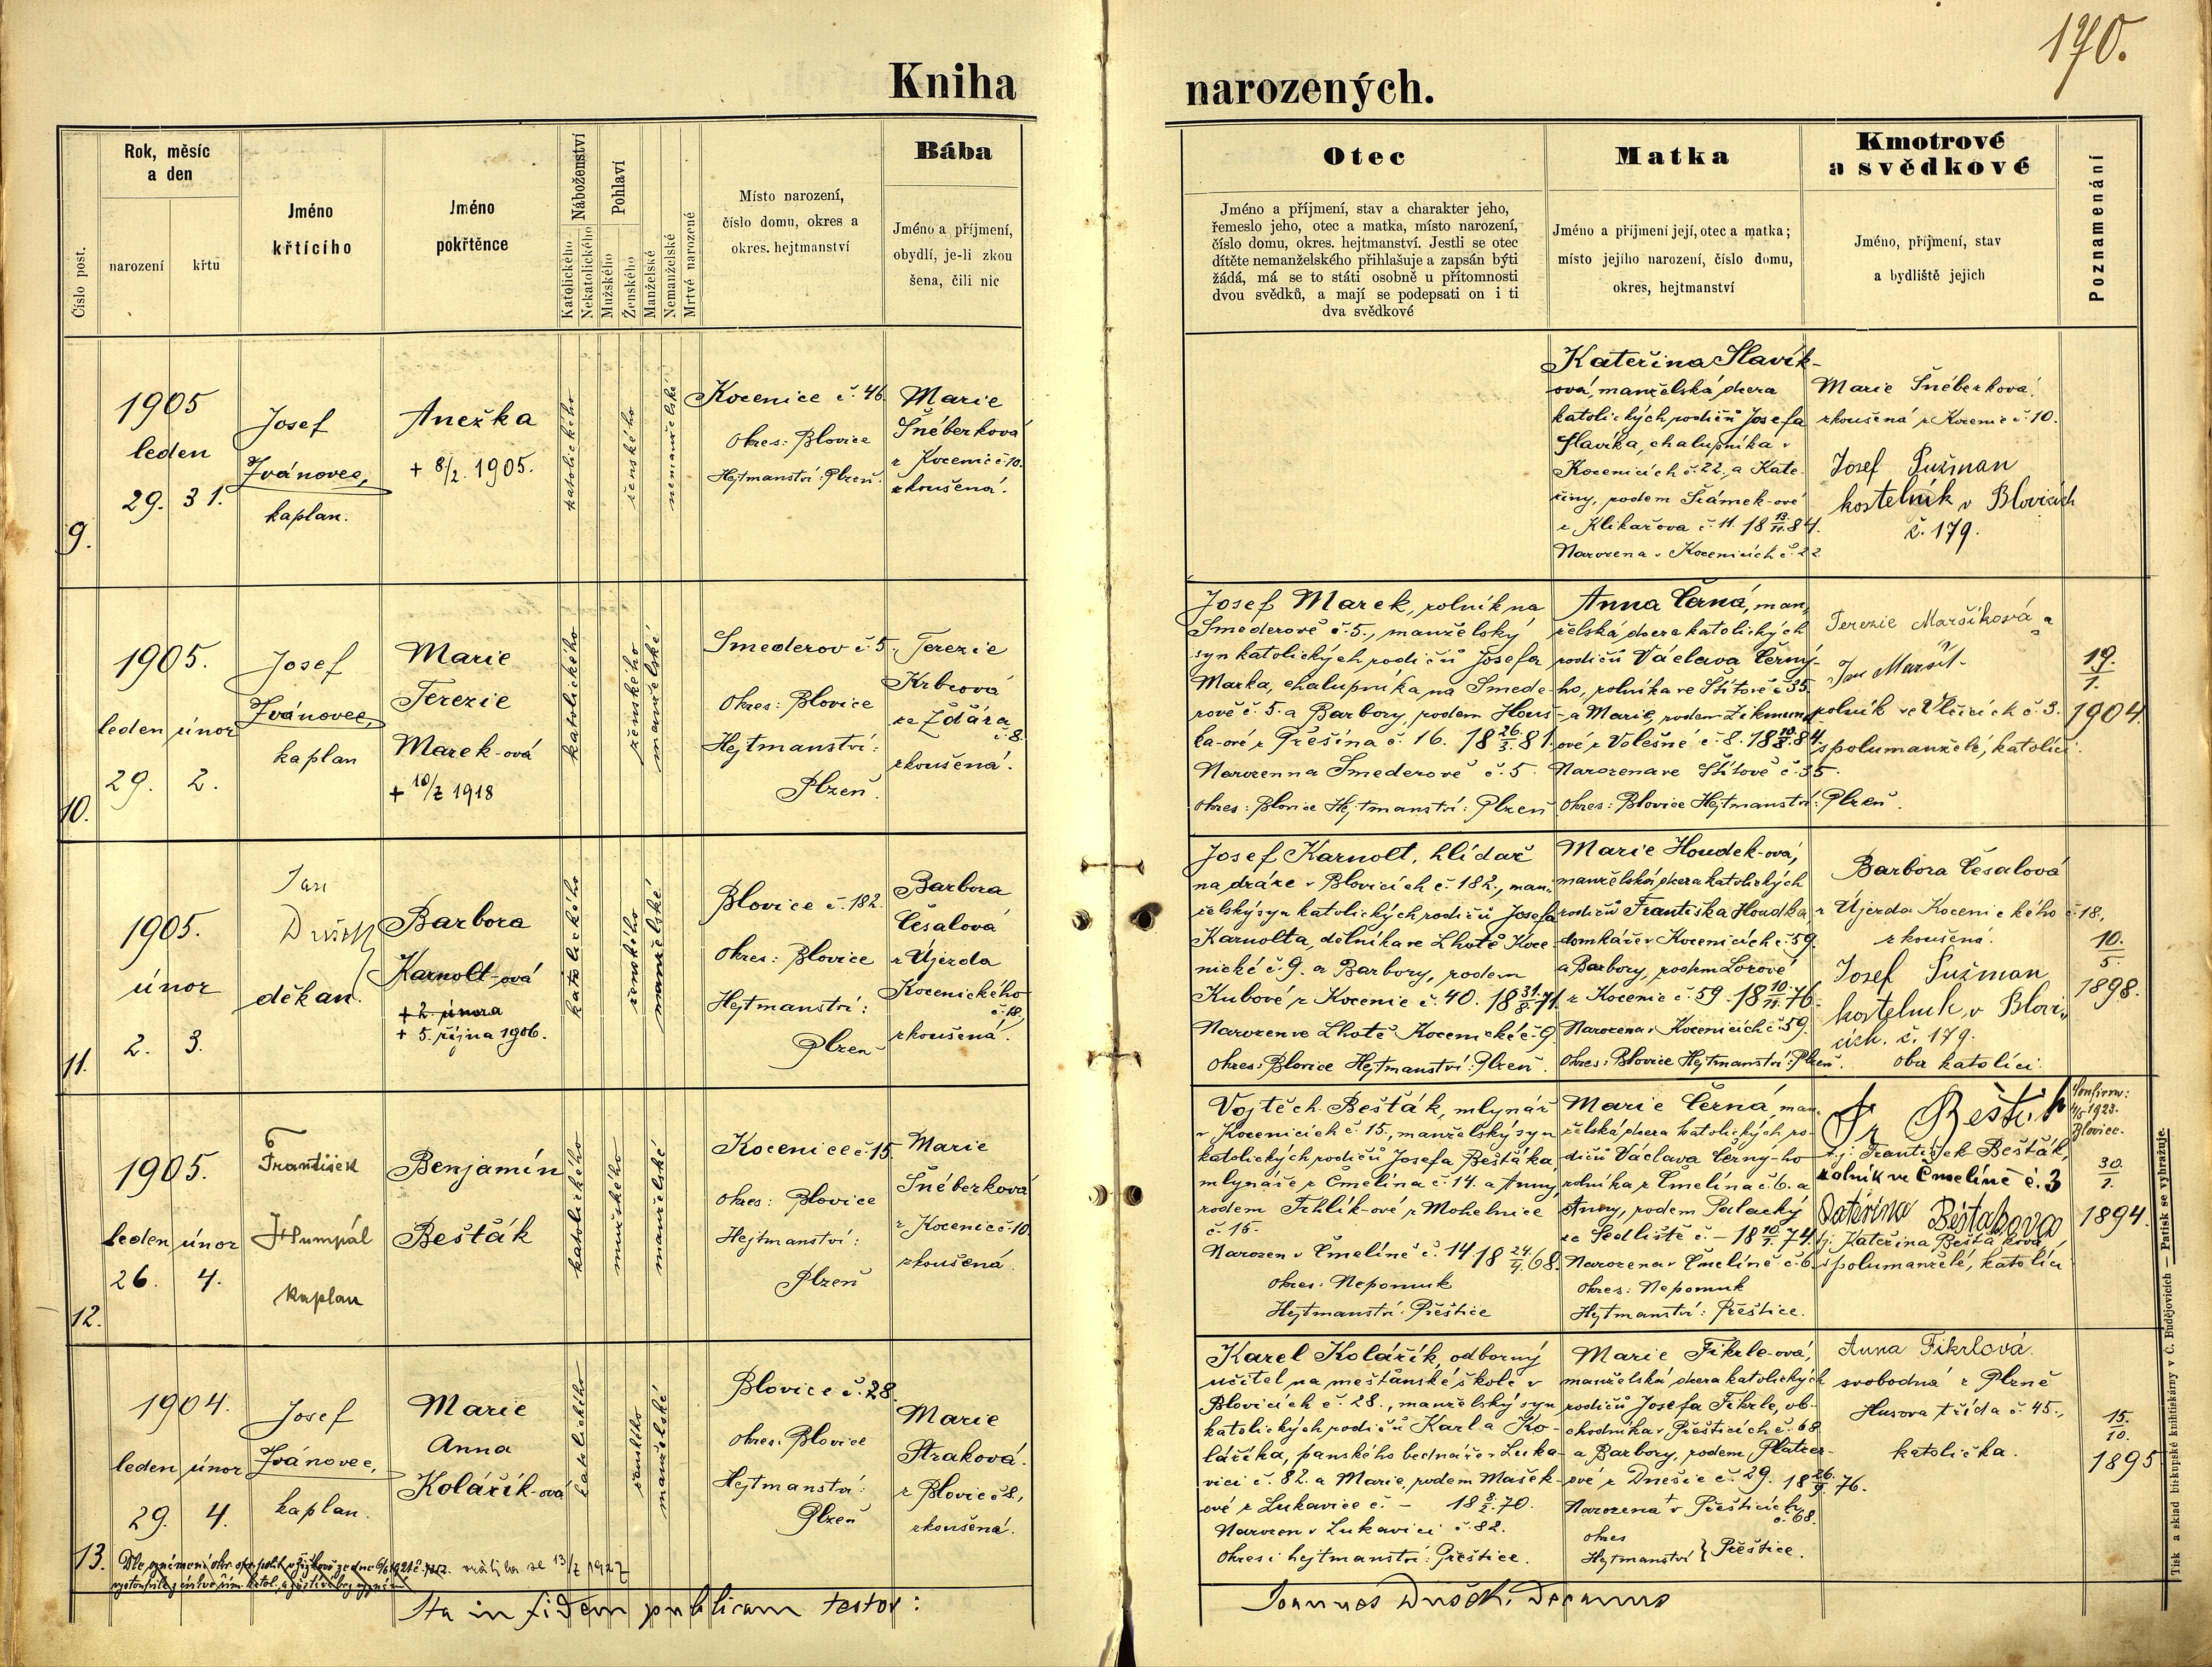 170.
Kniha narozených.
Číslo post.
Rok, měsíc
a den
narození
křtu
Jméno
křtícího
Jméno
pokřtěnce
Náboženství
Katolického
Nekatolického
Pohlaví
Mužského
Ženského
Manželské
Nemanželské
Mrtvé narozené
Místo narození,
číslo domu, okres a
okres. hejtmanství
Bába
Jméno a příjmení,
obydlí, je-li zkou
šena, čili nic
Otec
Jméno a příjmení, stav a charakter jeho,
řemeslo jeho, otec a matka, místo narození,
číslo domu, okres. hejtmanství. Jestli se otec
dítěte nemanželského přihlašuje a zapsán býti
žádá, má se to státi osobně u přítomnosti
dvou svědků, a mají se podepsati on i ti
dva svědkové
Matka
Jméno a příjmení její, otec a matka;
místo jejího narození, číslo domu,
okres, hejtmanství
Kmotrové
a svědkové
Jméno, příjmení, stav
a bydliště jejich
Poznamenání
9.
1905
leden
29. 31.
Josef
Ivánovec,
kaplan.
Anežka
+ 8/2. 1905.
katolického
ženského
nemanželské
Kocenice č. 46.
Okres: Blovice
Hejtmanství: Plzeň.
Marie
Šnéberková
z Kocenic č. 10.
zkoušená.
Kateřina Slavík-
ová, manželská dcera
katolických rodičů Josefa
Slavíka, chalupníka v
Kocenicích č. 22., a Kate-
řiny, rodem Šrámek-ové
z Klikařova č. 11. 18 13/11. 84.
Narozena v Kocenicích č. 22
Marie Šnéberková
zkoušená z Kocenic č. 10.
Josef Pužman
kostelník v Blovicích
č. 179.
10.
1905.
leden únor
29. 2.
Josef
Ivánovec,
kaplan
Marie
Terezie
Marek-ová
+ 10/2 1918
katolického
ženského
manželské
Smederov č. 5.
Okres: Blovice
Hejtmanství:
Plzeň.
Terezie
Krbcová
ze Ždára
č. 8.
zkoušená.
Josef Marek, rolník na
Smederově č. 5., manželský
syn katolických rodičů Josefa
Marka, chalupníka na Smede-
rově č. 5. a Barbory, rodem Hous-
ka-ové z Přešína č. 16. 18 26/3. 81.
Narozen na Smederově č. 5.
Okres: Blovice Hejtmanství: Plzeň
Anna Černá, man-
želská dcera katolických
rodičů Václava Černý-
ho, rolníka ve Štítově č. 35.
a Marie, rodem Zikmund
ové z Volešné č. 8. 18 10/8. 84.
Narozena ve Štítově č. 35.
Okres: Blovice Hejtmanství: Plzeň.
Terezie Maršíková a
Jan Maršík
rolník ve Vlčicích č. 3.
spolumanželé, katolíci.
19./1.
1904.
11.
1905.
únor
2. 3.
Jan
Dušek
děkan.
Barbora
Karnolt-ová
+ 2. února
+ 5. října 1906.
katolického
ženského
manželské
Blovice č. 182.
Okres: Blovice
Hejtmanství:
Plzeň
Barbora
Česalová
z Újezda
Kocenického
č. 18,
zkoušená.
Josef Karnolt, hlídač
na dráze v Blovicích č. 182., man-
želský syn katolických rodičů Josefa
Karnolta, dělníka ve Lhotě Koce-
nické č. 9. a Barbory, rodem
Kubové z Kocenic č. 40. 18 31./8. 71.
Narozen ve Lhotě Kocenické č. 9
Okres: Blovice Hejtmanství: Plzeň.
Marie Houdek-ová,
manželská dcera katolických
rodičů Františka Houdka
domkáře v Kocenicích č. 59.
a Barbory, rodem Lorové
z Kocenic č. 59. 18 10/11. 76.
Narozena v Kocenicích č. 59.
Okres: Blovice Hejtmanství: Plzeň.
Barbora Česalová
z Újezda Kocenického č. 18,
zkoušená.
Josef Pužman
kostelník v Blovi-
cích. č. 179.
oba katolíci.
10./5.
1898.
12.
1905.
leden únor
26. 4.
František
J. Humpál
kaplan
Benjamín
Bešťák
katolického
mužského
manželské
Kocenice č. 15.
Okres: Blovice
Hejtmanství:
Plzeň
Marie
Šnéberková
z Kocenic č. 10.
zkoušená.
Vojtěch Bešťák, mlynář
v Kocenicích č. 15., manželský syn
katolických rodičů Josefa Bešťáka,
mlynáře z Čmelína č. 14. a Anny,
rodem Trhlík-ové z Mohelnice
č. 15.
Narozen v Čmelíně č. 14 18 24./4. 68.
Okres: Nepomuk
Hejtmanství: Přeštice
Marie Černá, man-
želská dcera katolických ro-
dičů Václava Černý-ho
rolníka z Čmelína č. 6. a
Anny, rodem Palacký
ze Sedliště č. – 18 10/1. 74.
Narozena v Čmelíně č. 6.
Okres: Nepomuk
Hejtmanství: Přeštice.
Fr Bešťák
t.j. František Bešťák,
rolník ve Čmelíně č. 3
Kateřina Beštakova
t.j. Kateřina Bešťáková,
spolumanželé, katolíci
Confirm:
1923.
Blovice.
30./1.
1894.
13.
1904.
leden únor
29. 4.
Josef
Ivánovec,
kaplan.
Marie
Anna
Kolářík-ová
katolického
ženského
manželské
Blovice č. 28.
Okres: Blovice
Hejtmanství:
Plzeň
Marie
Straková.
z Blovic č. 8,
zkoušená.
Karel Kolářík, odborný
učitel na měšťanské škole v
Blovicích č. 28., manželský syn
katolických rodičů Karla Ko-
láříka, panského bednáře v Luka-
vici č. 82. a Marie, rodem Mašek-
ové z Lukavice č. – 18 8/2. 70.
Narozen v Lukavici č. 82.
Okres i hejtmanství: Přeštice.
Marie Fikrle-ová,
manželská dcera katolických
rodičů Josefa Fikrle, ob-
chodníka v Přešticích č. 68
a Barbory, rodem Platzer-
ové z Dnešic č. 29. 18 26./9. 76.
Narozena v Přešticích
č. 68.
Okres
Hejtmanství } Přeštice.
Anna Fikrlová.
svobodná z Plzně
Husova třída č. 45.,
katolička.
15./10.
1895
vrátila se 13/2 1927
Ita in fidem publicam testor:
Joannes Dušek, Decanus
Tisk a sklad biskupské knihtiskárny v Č. Budějovicích — Patisk se vyhražuje.